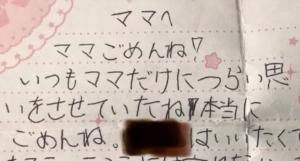 ママへ
ママごめんね
いつもママだけにつらい思
いをさせていたね本当に
ごめんね。はいいたくて